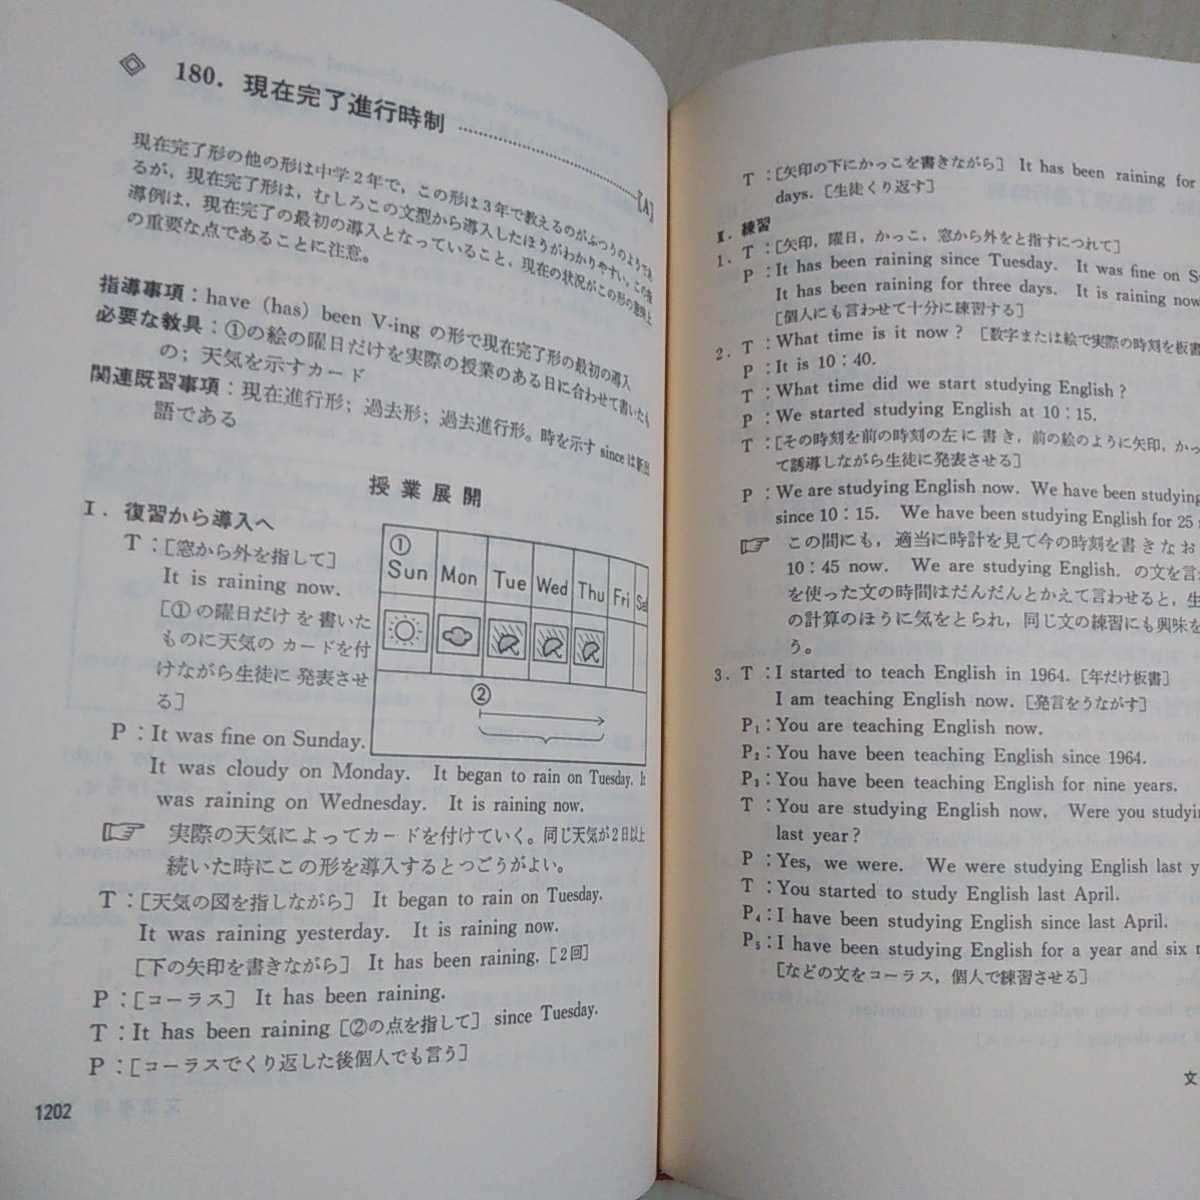 180. 現在完了進行時制 ……………………[A]
現在完了形の他の形は中学2年で，この形は3年で教えるのがふつうのようであ
るが，現在完了形は，むしろこの文型から導入したほうがわかりやすい。この指
導例は，現在完了の最初の導入となっていること，現在の状況がこの形の意味上
の重要な点であることに注意。
指導事項：have (has) been V-ing の形で現在完了形の最初の導入
必要な教具：①の絵の曜日だけを実際の授業のある日に合わせて書いたも
の；天気を示すカード
関連既習事項：現在進行形；過去形；過去進行形。時を示す since は新出
語である
授業展開
I. 復習から導入へ
T：[窓から外を指して]
It is raining now.
[①の曜日だけを書いた
ものに天気のカードを付
けながら生徒に発表させ
る]
①
Sun Mon Tue Wed Thu Fri Sa
②
P：It was fine on Sunday.
It was cloudy on Monday. It began to rain on Tuesday. It
was raining on Wednesday. It is raining now.
☞ 実際の天気によってカードを付けていく。同じ天気が2日以上
続いた時にこの形を導入するとつごうがよい。
T：[天気の図を指しながら] It began to rain on Tuesday.
It was raining yesterday. It is raining now.
[下の矢印を書きながら] It has been raining. [2回]
P：[コーラス] It has been raining.
T：It has been raining [②の点を指して] since Tuesday.
P：[コーラスでくり返した後個人でも言う]
1202
T：[矢印の下にかっこを書きながら] It has been raining for
days. [生徒くり返す]
II. 練習
1. T：[矢印，曜日，かっこ，窓から外をと指すにつれて]
P：It has been raining since Tuesday. It was fine on S
It has been raining for three days. It is raining now
[個人にも言わせて十分に練習する]
2. T：What time is it now? [数字または絵で実際の時刻を板書
P：It is 10：40.
T：What time did we start studying English?
P：We started studying English at 10：15.
T：[その時刻を前の時刻の左に書き，前の絵のように矢印，かっ
て誘導しながら生徒に発表させる]
P：We are studying English now. We have been studying
since 10：15. We have been studying English for 25
☞ この間にも，適当に時計を見て今の時刻を書きなお
10：45 now. We are studying English. の文を言
を使った文の時間はだんだんとかえて言わせると，生
の計算のほうに気をとられ，同じ文の練習にも興味を
う。
3. T：I started to teach English in 1964. [年だけ板書]
I am teaching English now. [発言をうながす]
P₁：You are teaching English now.
P₂：You have been teaching English since 1964.
P₃：You have been teaching English for nine years.
T：You are studying English now. Were you studyin
last year?
P：Yes, we were. We were studying English last y
T：You started to study English last April.
P₄：I have been studying English since last April.
P₅：I have been studying English for a year and six
[などの文をコーラス，個人で練習させる]
文